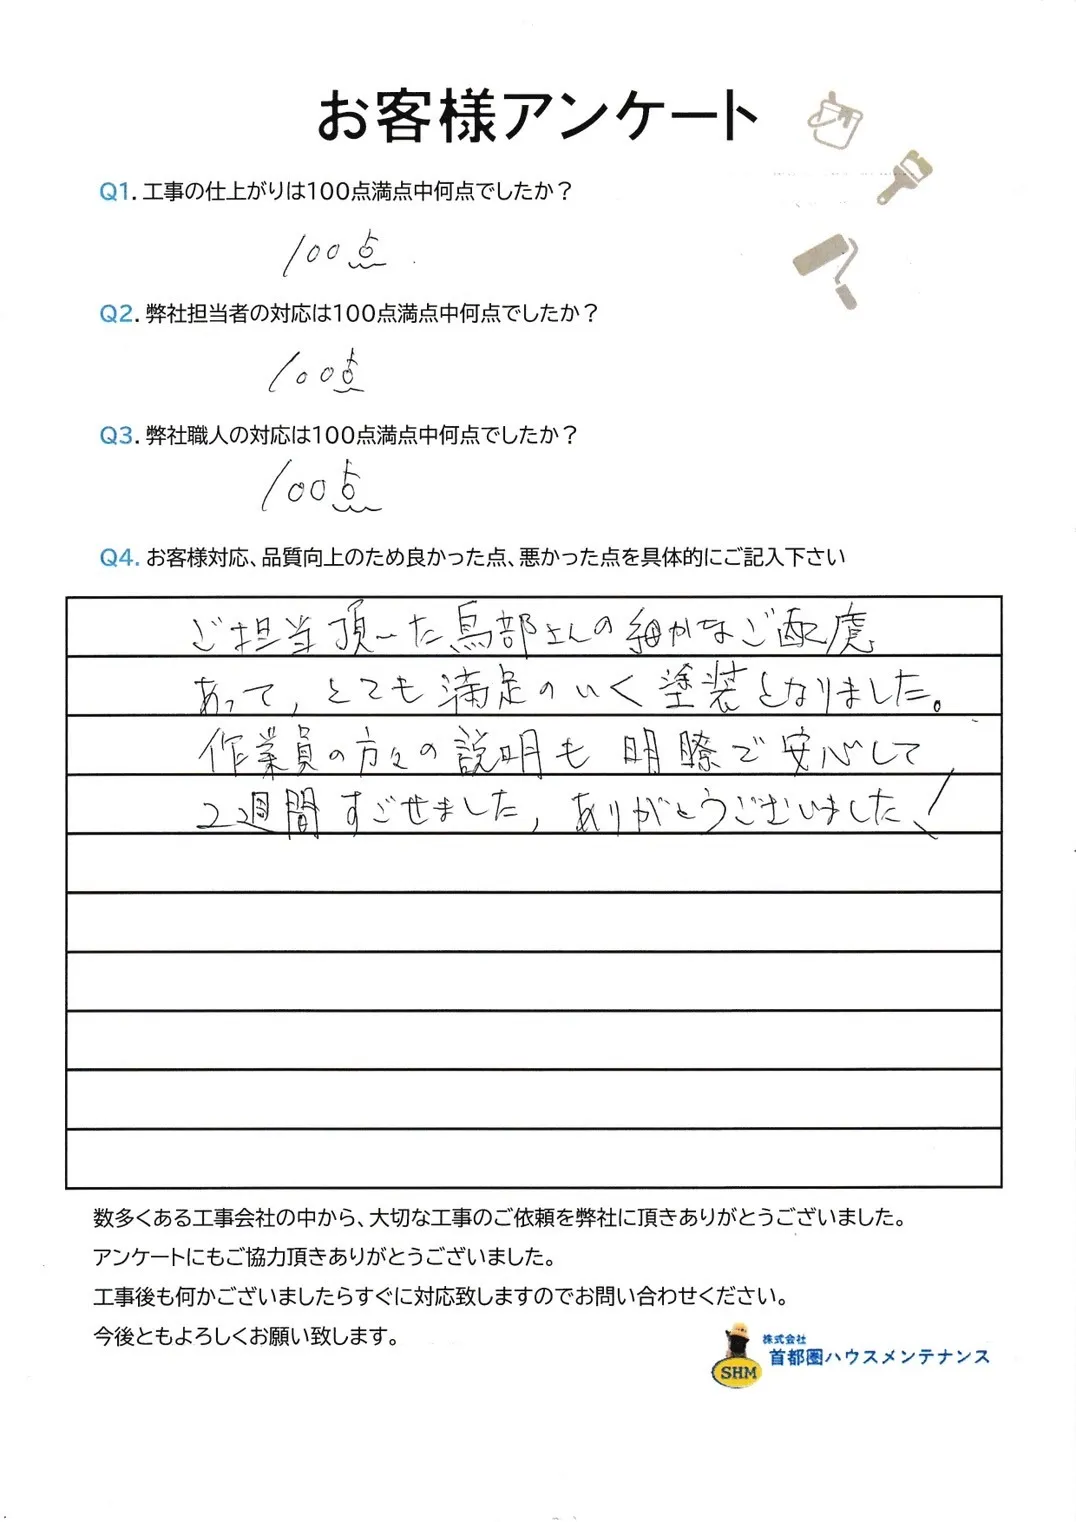 お客様アンケート
Q1. 工事の仕上がりは100点満点中何点でしたか？
100点
Q2. 弊社担当者の対応は100点満点中何点でしたか？
100点
Q3. 弊社職人の対応は100点満点中何点でしたか？
100点
Q4. お客様対応、品質向上のため良かった点、悪かった点を具体的にご記入下さい
ご担当頂いた鳥部さんの細かなご配慮
あって、とても満足のいく塗装となりました。
作業員の方々の説明も明瞭で安心して
2週間すごせました、ありがとうございました！
数多くある工事会社の中から、大切な工事のご依頼を弊社に頂きありがとうございました。
アンケートにもご協力頂きありがとうございました。
工事後も何かございましたらすぐに対応致しますのでお問い合わせください。
今後ともよろしくお願い致します。
株式会社
首都圏ハウスメンテナンス
SHM